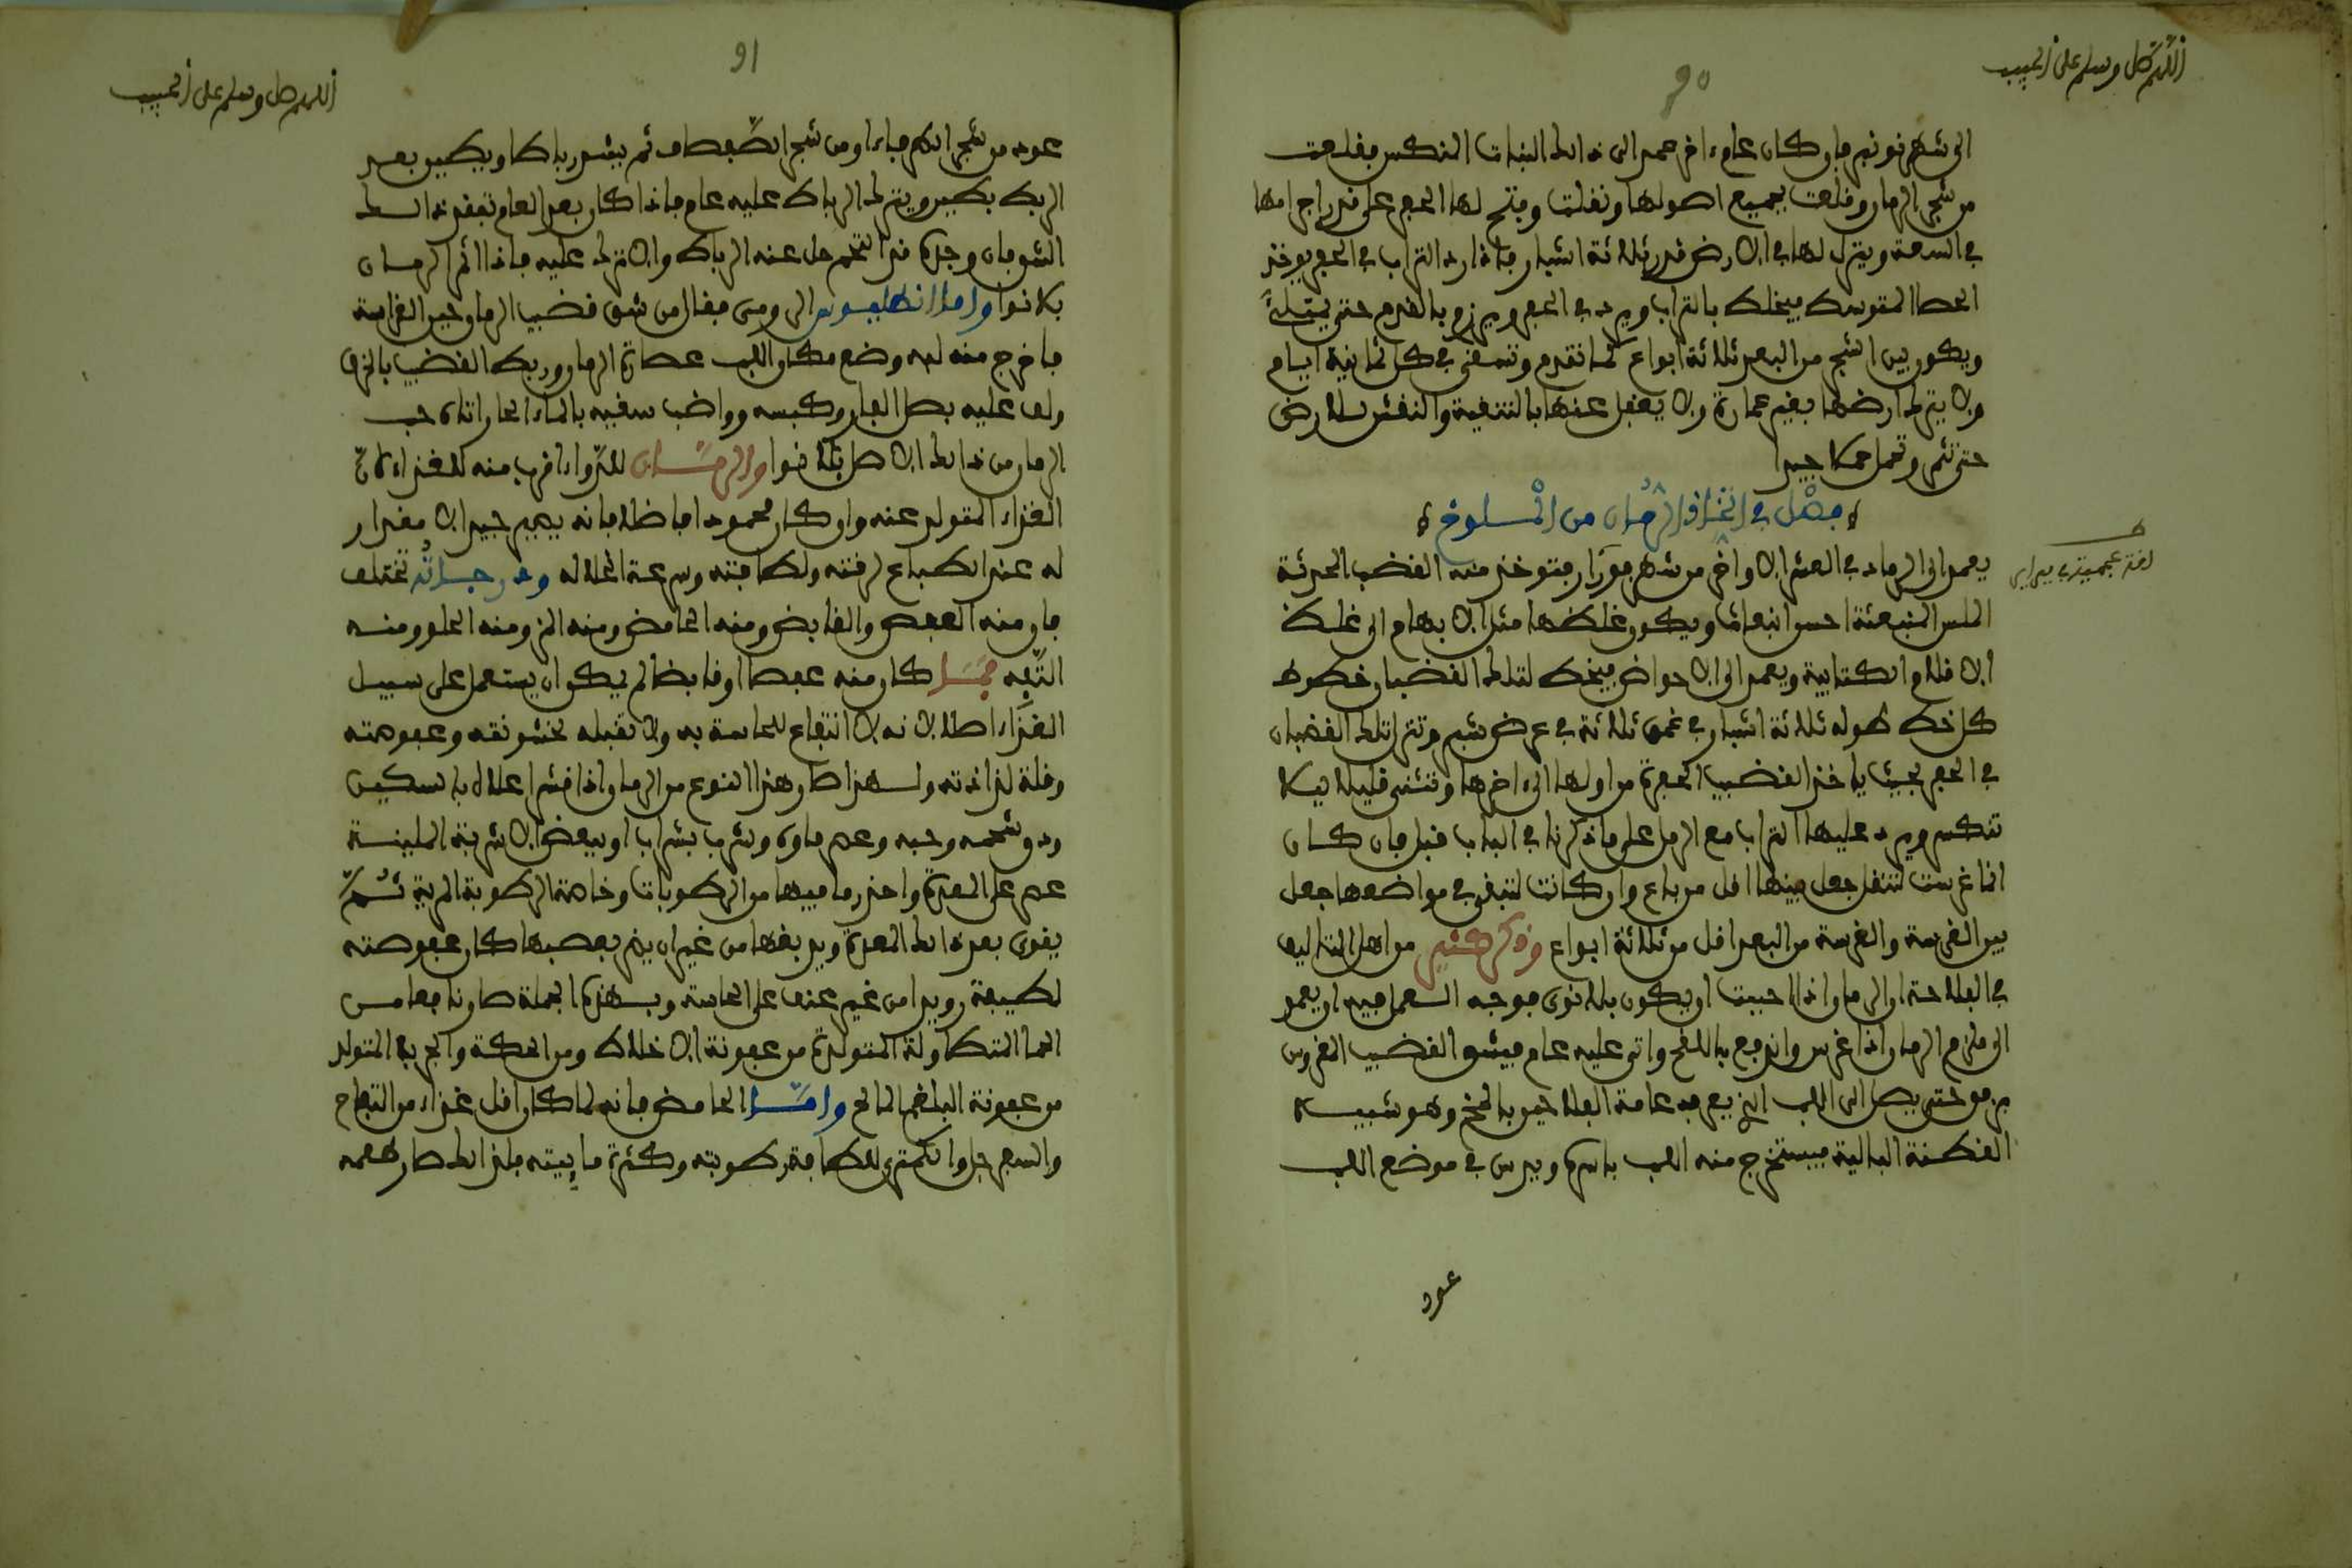 اللهم صل وسلم على الحبيب
90
الى شهر نونبر فان كان عام اخر عمد الى ذالك النبات النكس فقلعت
من شجر الرمان وقلعت بجميع اصولها ونقلت وفتح لها الحفر على قدر اجرامها
في السعة وينزل لها في الارض قدر ثلاثة اشبار فاذا رد التراب في الحفر يوخذ
الحصا المتوسط فيخلط بالتراب ويرد في الحفر ويرزم بالقدم حتى يمتلئ
ويكون بين الشجر من البعد ثلاثة ابواع كما تقدم وتسقى في كل ثمانية ايام
ولا يترك ارضها بغير عمارة ولا يغفل عنها بالتنقية والنقش للارض
حتى تثمر وتحمل حملا جيدا
فصل في اتخاذ الرمان من الملوخ
يعمد الى الرمان في العشر الاواخر من شهر فورار فتوخذ منه القضب الحديثة
الملس المنبعثة احسن انبعاث ويكون غلظها مثل الابهام الى غلظ
الاقلام الكتابية ويعمد الى الاحواض فيخط لتلك القضبان خطوط
كل خط طوله ثلاثة اشبار في عمق ثلاثة في عرض شبر وتنزل تلك القضبان
في الحفر بحيث ياخذ القضيب الحفرة من اولها الى اخرها وتثنى قليلا ليلا
تنكسر ويرد عليها التراب مع الرمل على ما ذكرنا في الباب قبل فان كان
انما غرست لتنقل جعل بينها اقل من باع وان كانت لتبقى في مواضعها جعل
بين الغرسة والغرسة من البعد اقل من ثلاثة ابواع وذكر كثير من اهل التاليف
في الفلاحة ان الرمان اذا احببت ان يكون بلا نوى فوجه العمل فيه ان يعمد
الى ملزم الرمان اذا غرس واندفع باللقح واتى عليه عام فيشق القضيب المغروس
برفق حتى يصل الى اللب الذي يعرفه عامة الفلاحين بالمخ وهو شبيه
القطنة البالية فيستخرج منه اللب باسره ويدس في موضع اللب
عود
لغة عجمية في يبراير
اللهم صل وسلم على الحبيب
91
عود من شجر الكرم فاما او من شجر الصفصاف ثم يشد رباطا ويطين بعد
الربط بطين ويترك الرباط عليه عام فاذا كان بعد العام تفقد ذالك
الشق فان وجده قد التحم حل عنه الرباط والا ترك عليه فاذا اثمر الرمان
بلا نوا واما انطليوس الرومى فقال من شق قضيب الرمان حين الغراسة
فاخرج منه لبه وضع مكان اللب عصارة الرمان وربط القضيب بالخرق
ولف عليه بصل الفار وكبسه وواضب سقيه بالماء الحار اتاه حب
الرمان من ذالك الاصل بلا نوا والرمان للدواء اقرب منه للغذاء لان
الغذاء المتولد عنه وان كان محمودا فاضلا فانه يسير جدا لا مقدار
له عند الطباع لرقته ولطافته وسرعة انحلاله ودرجاته تختلف
فان منه العفص والقابض ومنه الحامض ومنه المز ومنه الحلو ومنه
التفه فما كان منه عفصا او قابضا لم يكن ان يستعمل على سبيل
الغذاء اصلا لانه لا انتفاع للحاسة به ولا تقبله لخشونته وعفوصته
وقلة لذاذته ولهذا صار هذا النوع من الرمان اذا قشر اعلاه بالسكين
ودق شحمه وحبه وعصر ماوه وشرب بشراب او ببعض الاشربة الملينة
عصر على المعدة واحدر ما فيها من الرطوبات وخاصة الرطوبة المرية ثم
يقوى بعد ذالك المعدة ويدبغها من غير ان يضر بعصبها كان عفوصته
لطيفة رويدا من غير عنف على الحاسة وبهذه الجملة صار نافعا من
الحما المتطاولة المتولدة من عفونة الاخلاط ومن الحكة والجرب المتولد
من عفونة البلغم المالح واما الحامض فانه لما كان اقل غذاء من التفاح
والسفرجل والكمثرى للطافة رطوبته وكثرة مايئته فلذالك صار طعمه